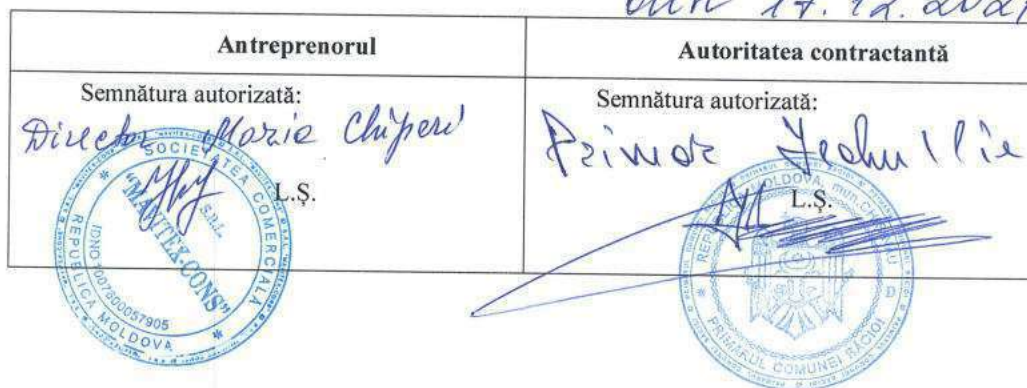 din 17.12.2021
Antreprenorul
Autoritatea contractantă
Semnătura autorizată:
Director Maria Chiperi
L.Ș.
Semnătura autorizată:
Primar Ilie
L.Ș.
SOCIETATEA COMERCIALĂ
"MAVITEX-CONS"
S.R.L.
REPUBLICA MOLDOVA
1007600057905
REPUBLICA MOLDOVA, mun.
PRIMARUL COMUNEI BĂCIOI